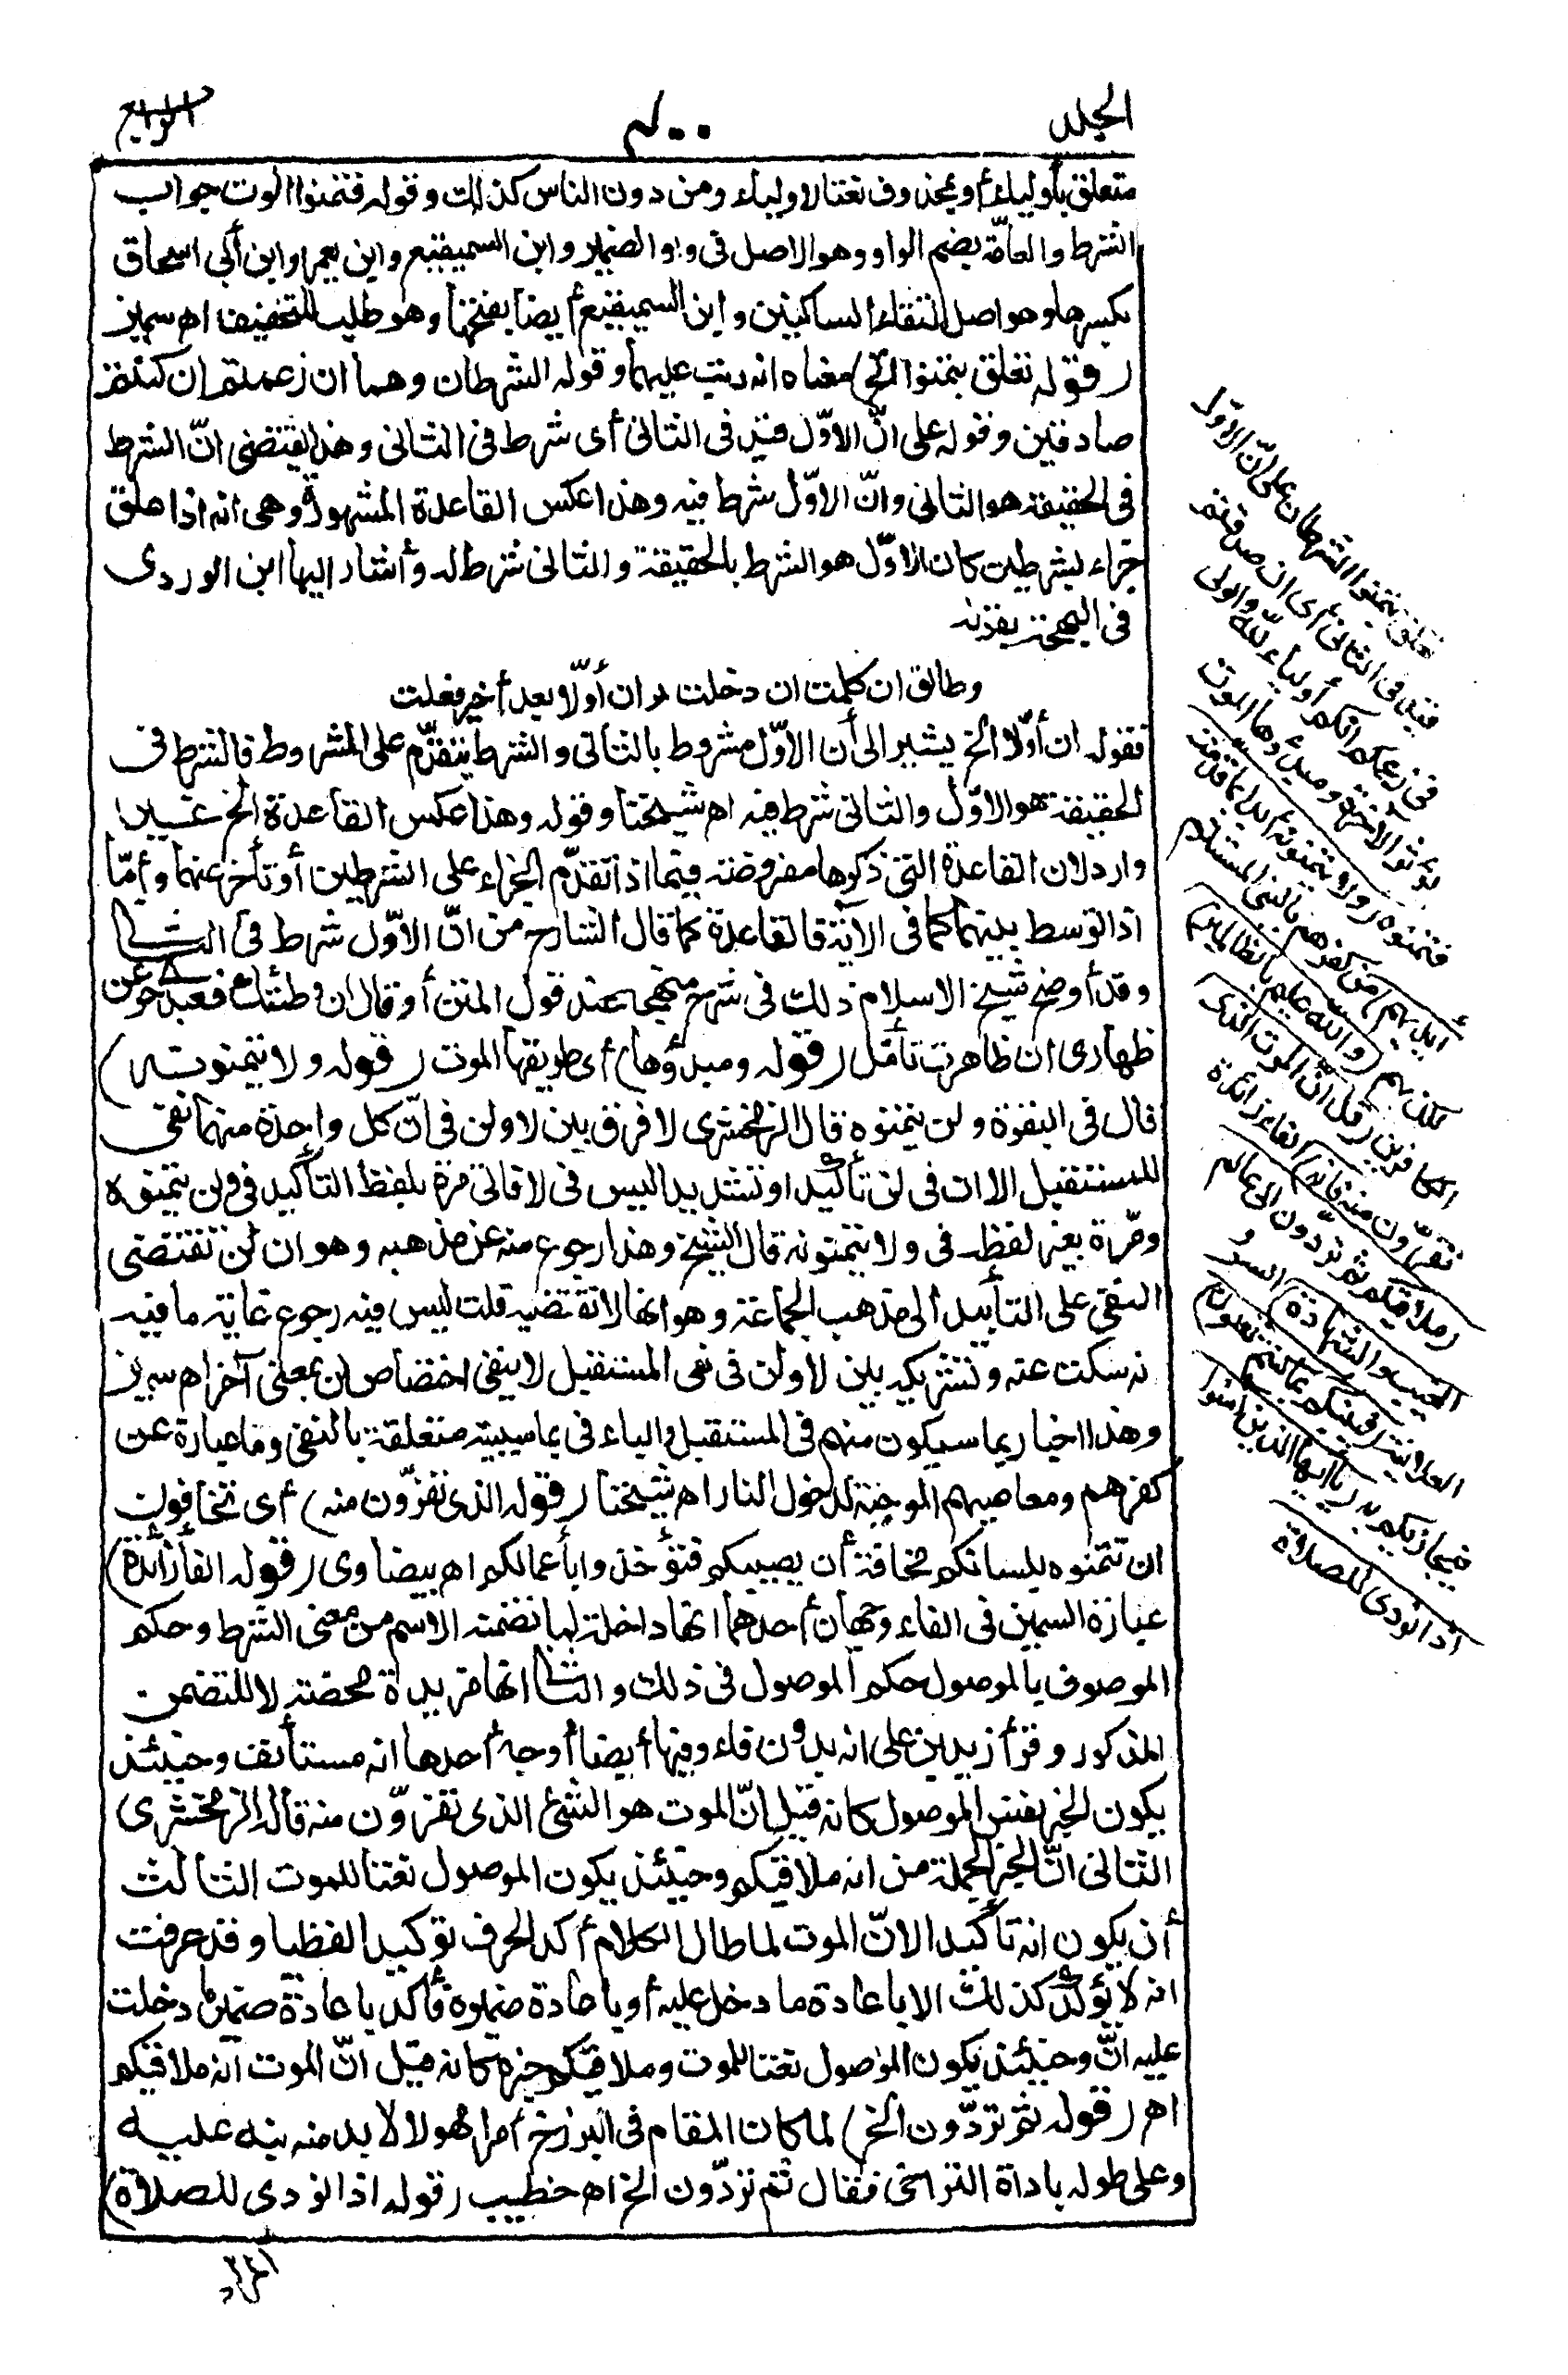 الجلد
٤٠٠
الرابع
متعلق بأولياء أو بمحذوف نعتا لاولياء ومن دون الناس كذلك وقوله فتمنوا الموت جواب
الشرط والعامّة بضم الواو وهو الاصل فى واو الضمير وابن السميفيع وابن يعمر وابن أبى اسحاق
بكسرها وهو اصل التقاء الساكنين وابن السميفيع أيضا بفتحها وهو طلب للتخفيف اهـ سمين
(قوله تعلق بتمنوا الخ) معناه انه رتب عليهما وقوله الشرطان وهما ان زعمتم ان كنتم
صادقين وقوله على انّ الاوّل قيد فى الثانى أى شرط فى الثانى وهذا يقتضى انّ الشرط
فى الحقيقة هو الثانى وانّ الاوّل شرط فيه وهذا عكس القاعدة المشهورة وهى انه اذا علق
جزاء بشرطين كان الاوّل هو الشرط بالحقيقة والثانى شرط له وأشار اليها ابن الوردى
فى البهجة بقوله
وطالق ان كلمت ان دخلت ان أوّلا بعد أخير فعلت
فقوله ان أوّلا الخ يشير الى أن الاوّل مشروط بالثانى والشرط يتقدّم على المشروط فالشرط فى
الحقيقة هو الاوّل والثانى شرط فيه اهـ شيخنا وقوله وهذا عكس القاعدة الخ غير
وارد لان القاعدة التى ذكروها مفروضة فيما اذا تقدّم الجزاء على الشرطين أو تأخر عنهما وأمّا
اذا توسط بينهما كما فى الآية فالقاعدة كما قال الشارح من انّ الاوّل شرط فى الثانى
وقد أوضح شيخ الاسلام ذلك فى شرح منهجه عند قول المتن أو قال ان وطئتك فعبدى حر عن
ظهارى ان ظاهرت تأمّل (قوله ومبدؤها) أى طريقها الموت (قوله ولا يتمنونه)
قال فى البقرة ولن يتمنوه قال الزمخشرى لا فرق بين لا ولن فى انّ كل واحدة منهما نفى
للمستقبل الا ان فى لن تأكيدا وتشديدا ليس فى لا فاتى مرة بلفظ التأكيد فى ولن يتمنوه
ومرّة بغير لفظه فى ولا يتمنونه قال الشيخ وهذا رجوع منه عن مذهبه وهو ان لن تقتضى
النفى على التأبيد الى مذهب الجماعة وهو انها لا تقتضيه قلت ليس فيه رجوع غاية ما فيه
نه سكت عنه وتشريكه بين لا ولن فى نفى المستقبل لا ينفى اختصاص لن بمعنى آخر اهـ سمين
وهذا اخبار بما سيكون منهم فى المستقبل والباء فى بما سببية متعلقة بالنفى وما عبارة عن
كفرهم ومعاصيهم الموجبة لدخول النار اهـ شيخنا (قوله الذى تفرّون منه) أى تخافون
ان تتمنوه بلسانكم مخافة أن يصيبكم فتؤخذوا بأعمالكم اهـ بيضاوى (قوله الفاء زائدة)
عبارة السمين فى الفاء وجهان أحدهما انها داخلة لما تضمنه الاسم من معنى الشرط وحكم
الموصوف بالموصول حكم الموصول فى ذلك والثانى انها مزيدة محضة لا للتضمن
المذكور وقرأ زيد بن على انه بدون فاء وفيها أيضا أوجه أحدها انه مستأنف وحينئذ
يكون الخبر نفس الموصول كانه قيل انّ الموت هو الشئ الذى تفرّون منه قاله الزمخشرى
الثانى انّ الخبر الجملة من انه ملاقيكم وحينئذ يكون الموصول نعتا للموت الثالث
أن يكون انه تأكيدا لانّ الموت لما طال الكلام أكد الحرف توكيدا لفظيا وقد عرفت
انه لا يؤكد كذلك الا باعادة ما دخل عليه أو باعادة ضميره فأكد باعادة ضمير ما دخلت
عليه انّ وحينئذ يكون الموصول نعتا للموت وملاقيكم خبره كانه قيل انّ الموت انه ملاقيكم
اهـ (قوله ثم تردّون الخ) لما كان المقام فى البرزخ أمرا مهولا لا بد منه نبه عليه
وعلى طوله باداة التراخى فقال ثم تردّون الخ اهـ خطيب (قوله اذا نودى للصلاة)
تعلق بتمنوا الشرطان على انّ الاوّل
قيد فى الثانى أى ان صدقتم
فى زعمكم انكم أولياء لله والولى
يؤثر الآخرة ومبدؤها الموت
فتمنوه (ولا يتمنونه أبدا بما قدّمت
أيديهم) من كفرهم بالنبى المستلزم
لكذبهم (والله عليم بالظالمين)
الكافرين (قل انّ الموت الذى
تفرّون منه فانه) الفاء زائدة
(ملاقيكم ثم تردّون الى عالم
الغيب والشهادة) السر و
العلانية (فينبئكم بما كنتم تعملون)
فيجازيكم به (يا أيها الذين آمنوا
اذا نودى للصلاة